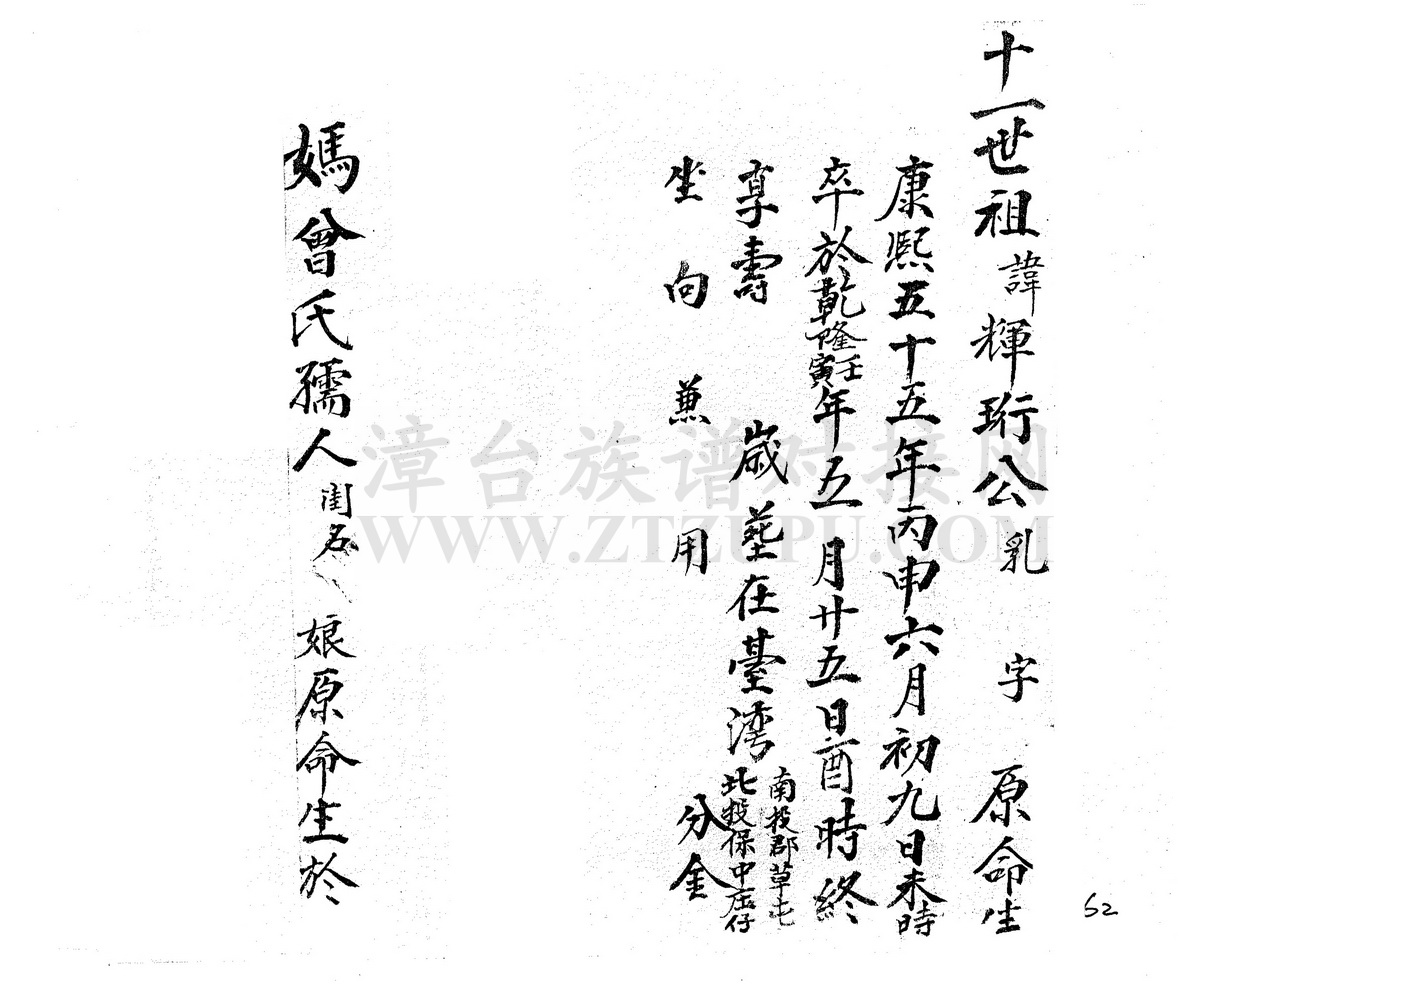 十一世祖諱輝珩公乳 字 原命生
康熙五十五年丙申六月初九日未時
卒於乾隆壬寅年五月廿五日酉時終
享壽 歲塟在臺湾南投郡草屯
北投保中庄仔
坐 向 兼 用 分金
媽曾氏孺人閨名 娘原命生於
漳台族谱对接网
WWW.ZTZUPU.COM
52